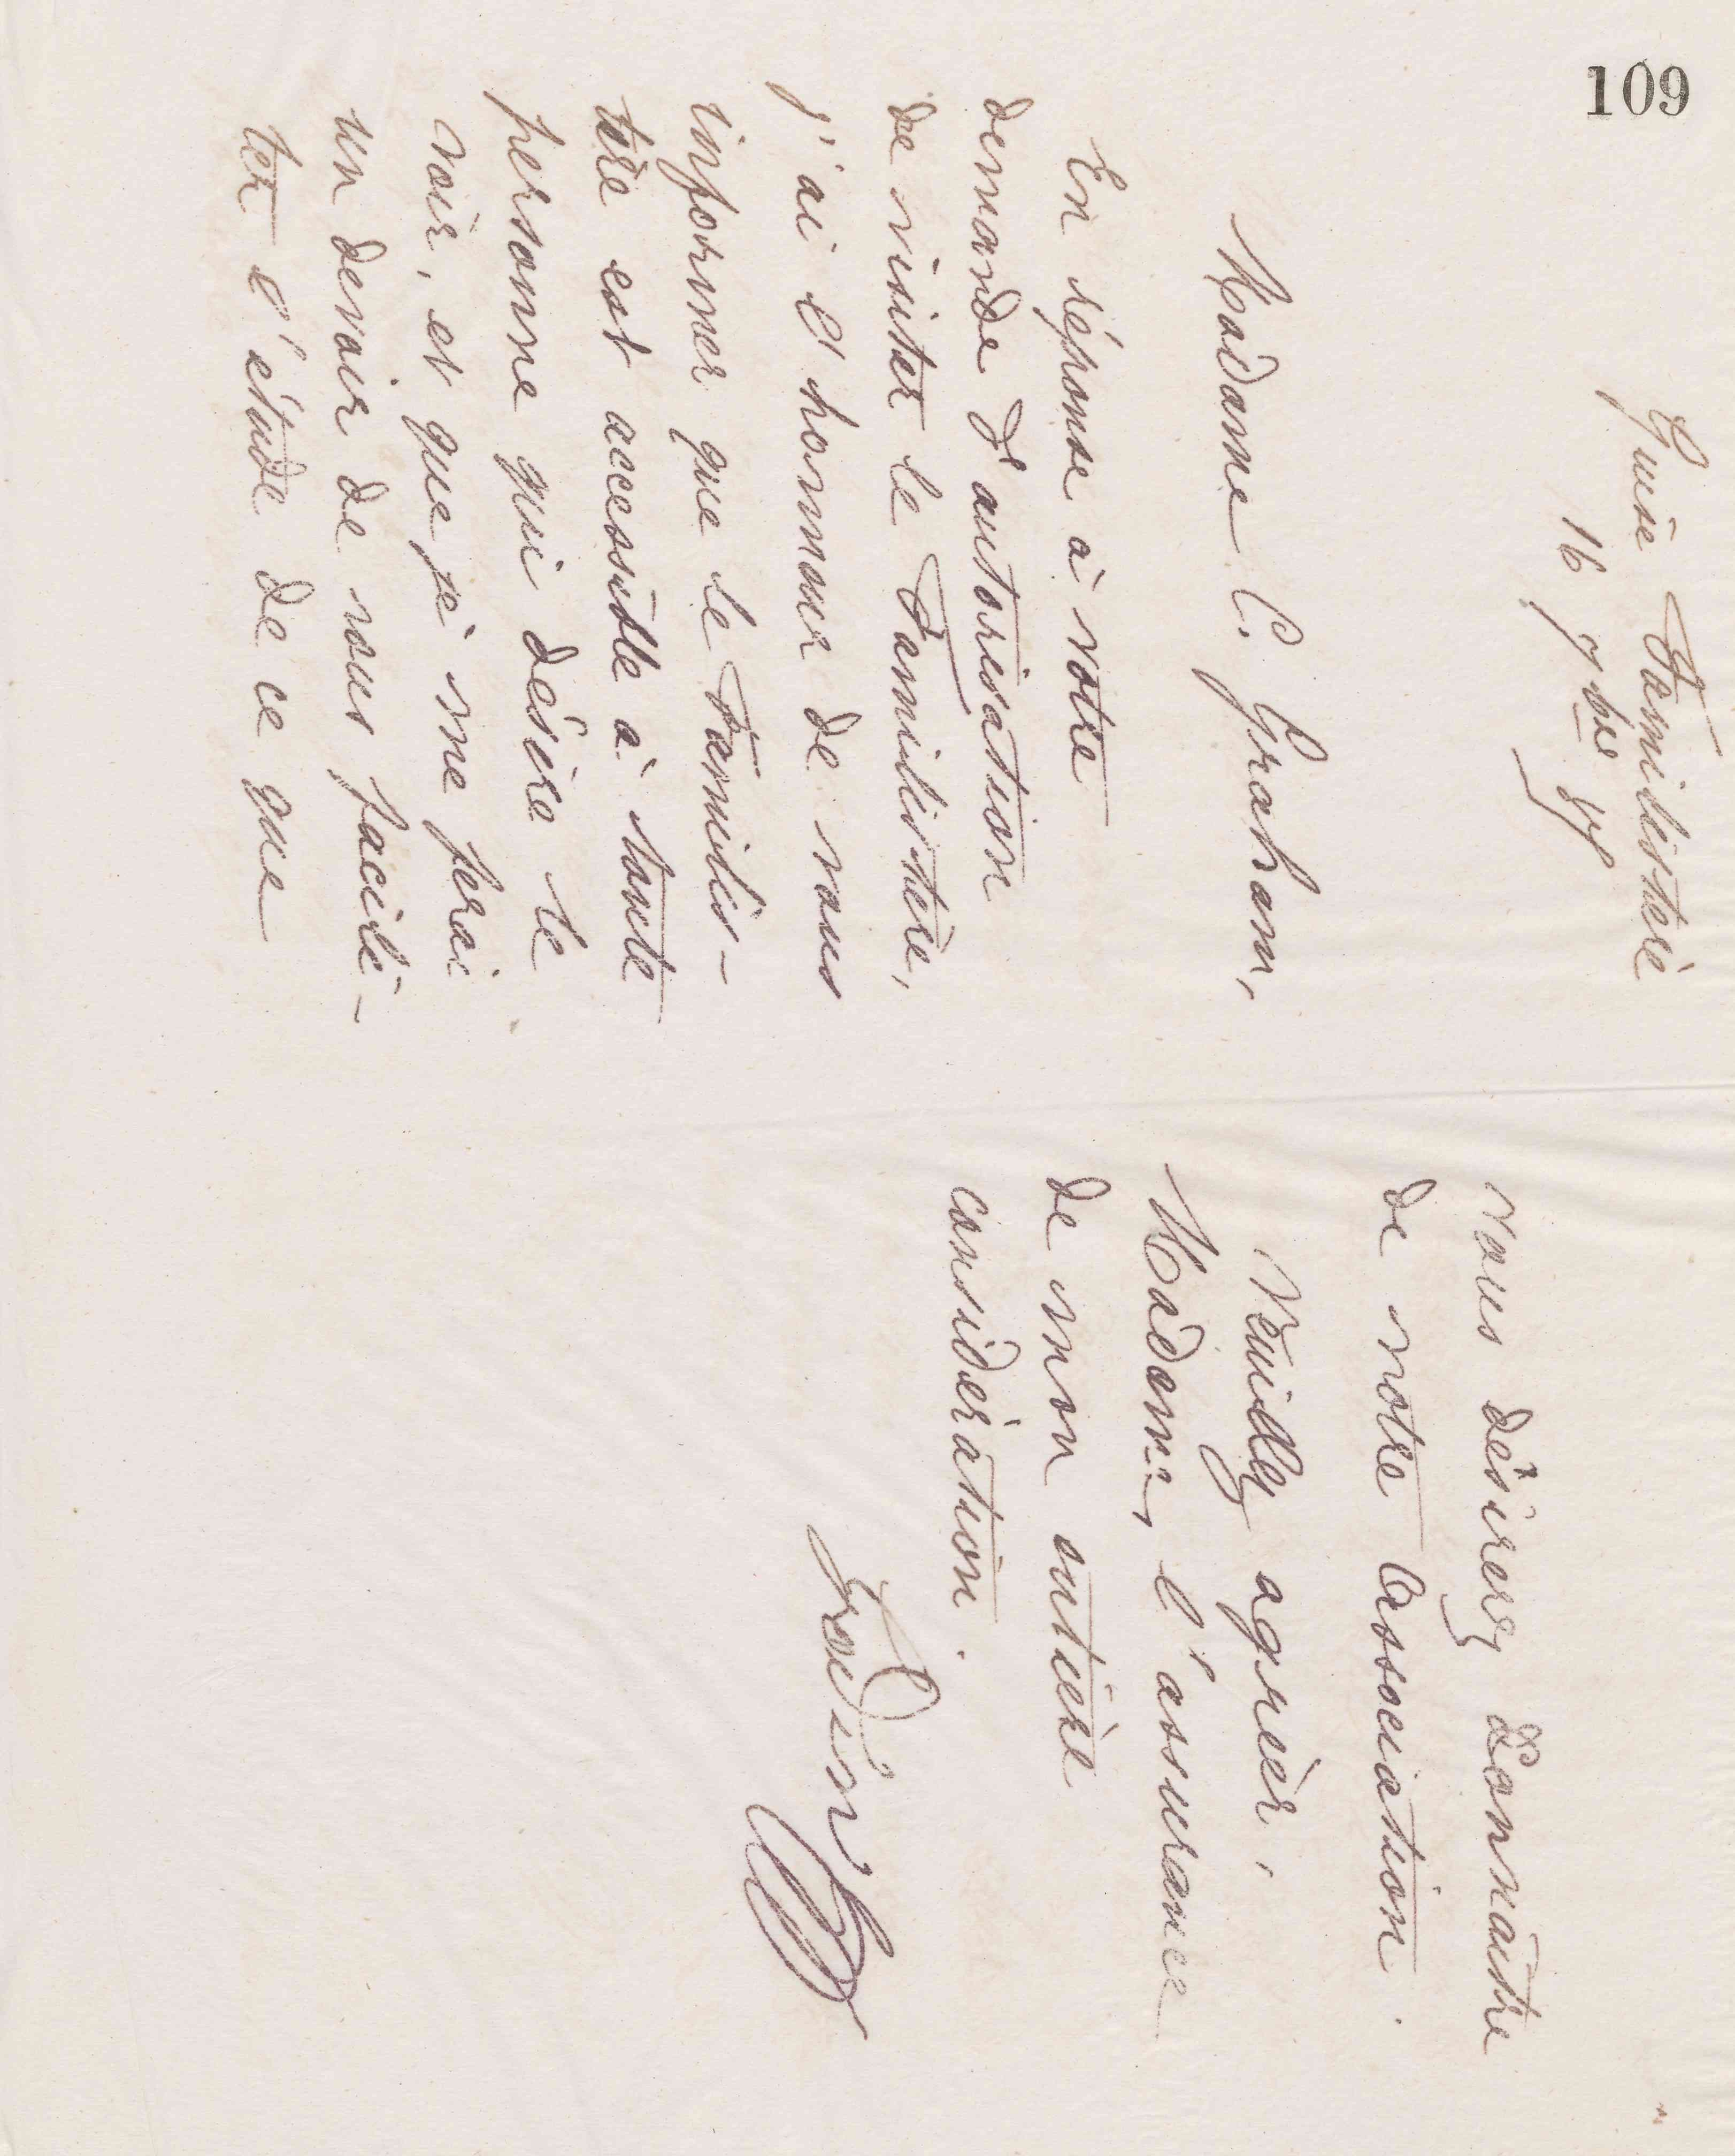 109
Guise Familistère
16 7bre 87
Madame C. Graham,
En réponse à votre
demande d'autorisation
de visiter le Familistère,
j'ai l'honneur de vous
informer que le Familis-
tère est accessible à toute
personne qui désire le
voir, et que je me ferai
un devoir de vous facili-
ter l'étude de ce que
vous désirez connaître
de notre Association.
Veuillez agréer,
Madame, l'assurance
de mon entière
considération.
Godin